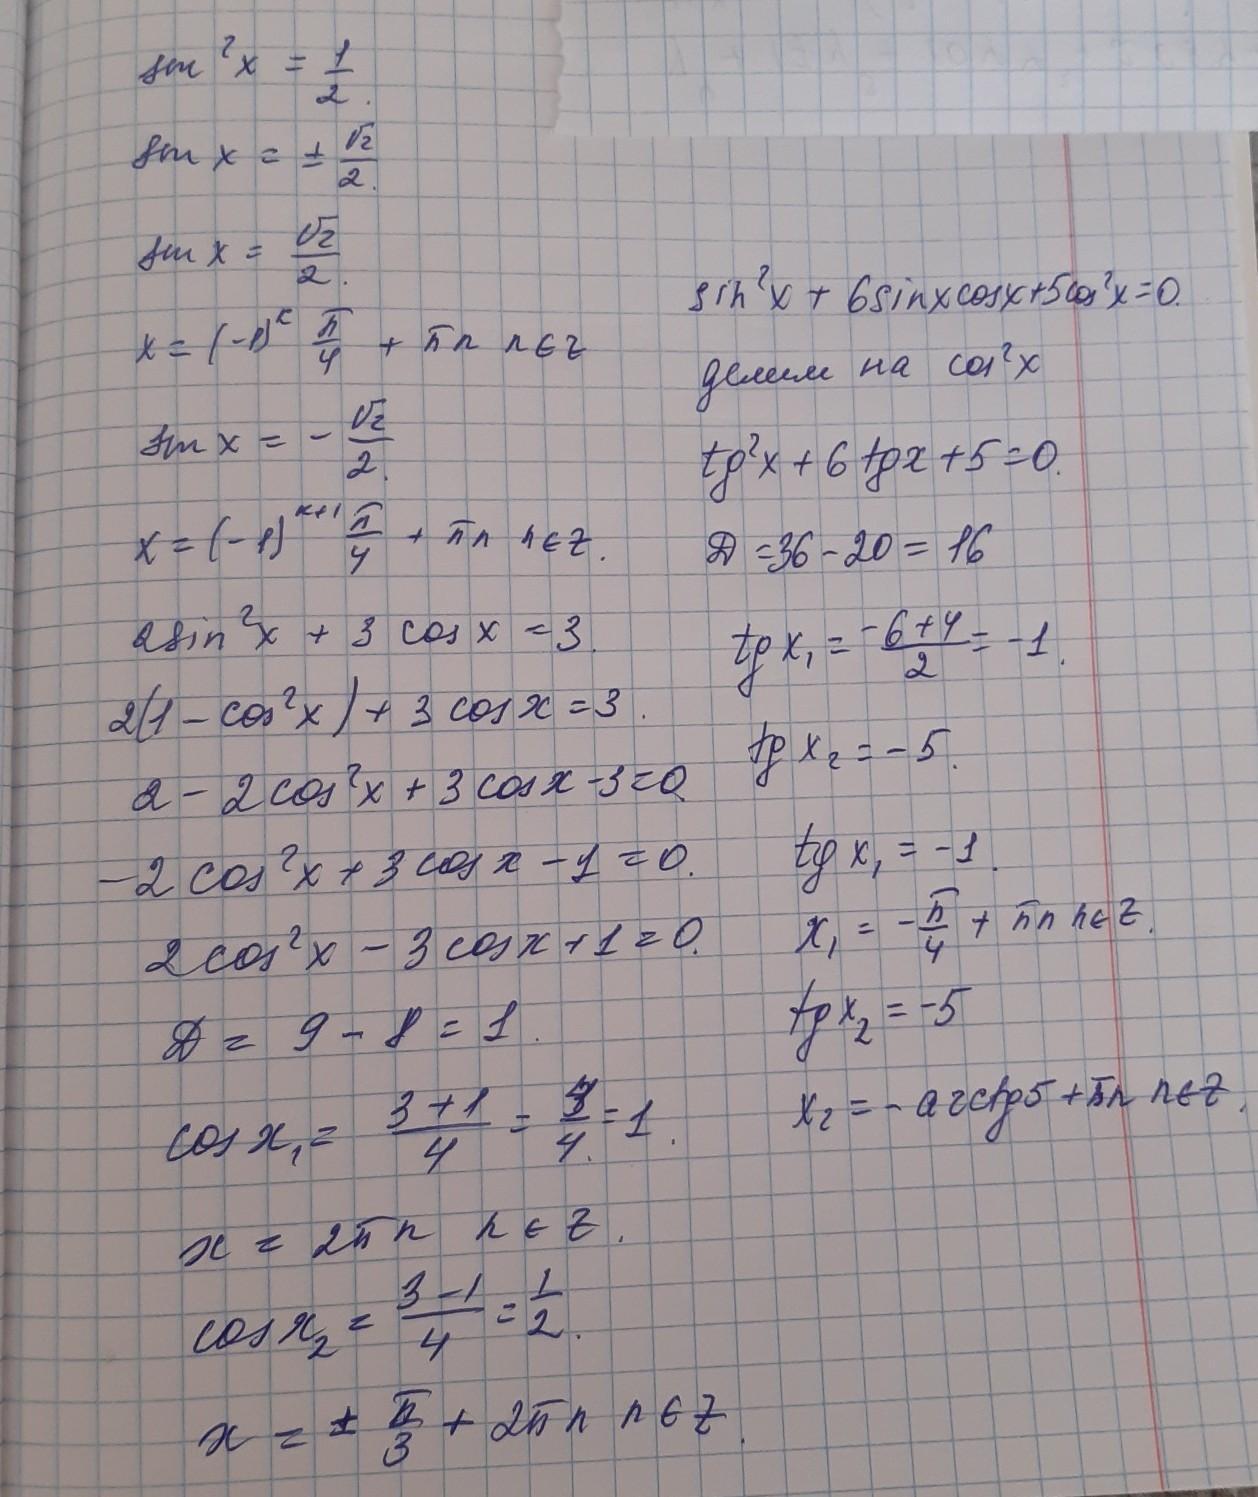 sin²x = 1/2.
sin x = ± √2/2.
sin x = √2/2.
x = (-1)^k π/4 + πn n∈Z
sin x = - √2/2.
x = (-1)^(k+1) π/4 + πn n∈Z.
2sin²x + 3 cos x = 3.
2(1 - cos²x) + 3 cos x = 3.
2 - 2cos²x + 3cosx - 3 = 0
-2 cos²x + 3 cos x - 1 = 0.
2cos²x - 3cosx + 1 = 0.
D = 9 - 8 = 1.
cos x₁ = (3+1)/4 = 4/4 = 1.
x = 2πn n∈Z.
cos x₂ = (3-1)/4 = 1/2.
x = ± π/3 + 2πn n∈Z.
sin²x + 6sinxcosx+5cos²x=0.
делим на cos²x
tg²x + 6tgx + 5 = 0.
D = 36 - 20 = 16
tg x₁ = (-6+4)/2 = -1.
tg x₂ = -5.
tg x₁ = -1.
x₁ = -π/4 + πn n∈Z.
tg x₂ = -5
x₂ = - arctg5 + πn n∈Z.